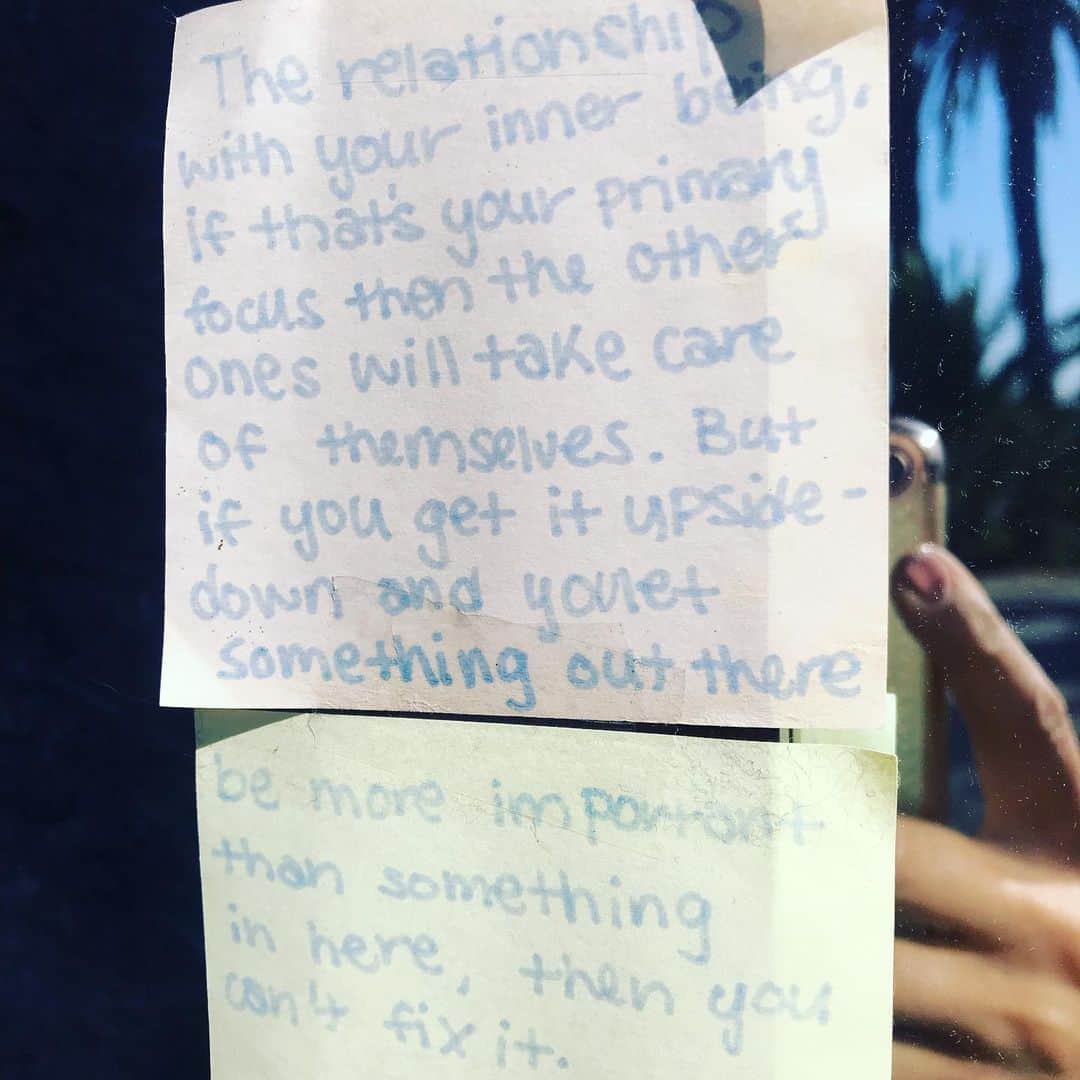 The relationship
with your inner being,
if that's your primary
focus then the other
ones will take care
of themselves. But
if you get it upside-
down and you let
something out there
be more important
than something
in here, then you
can't fix it.